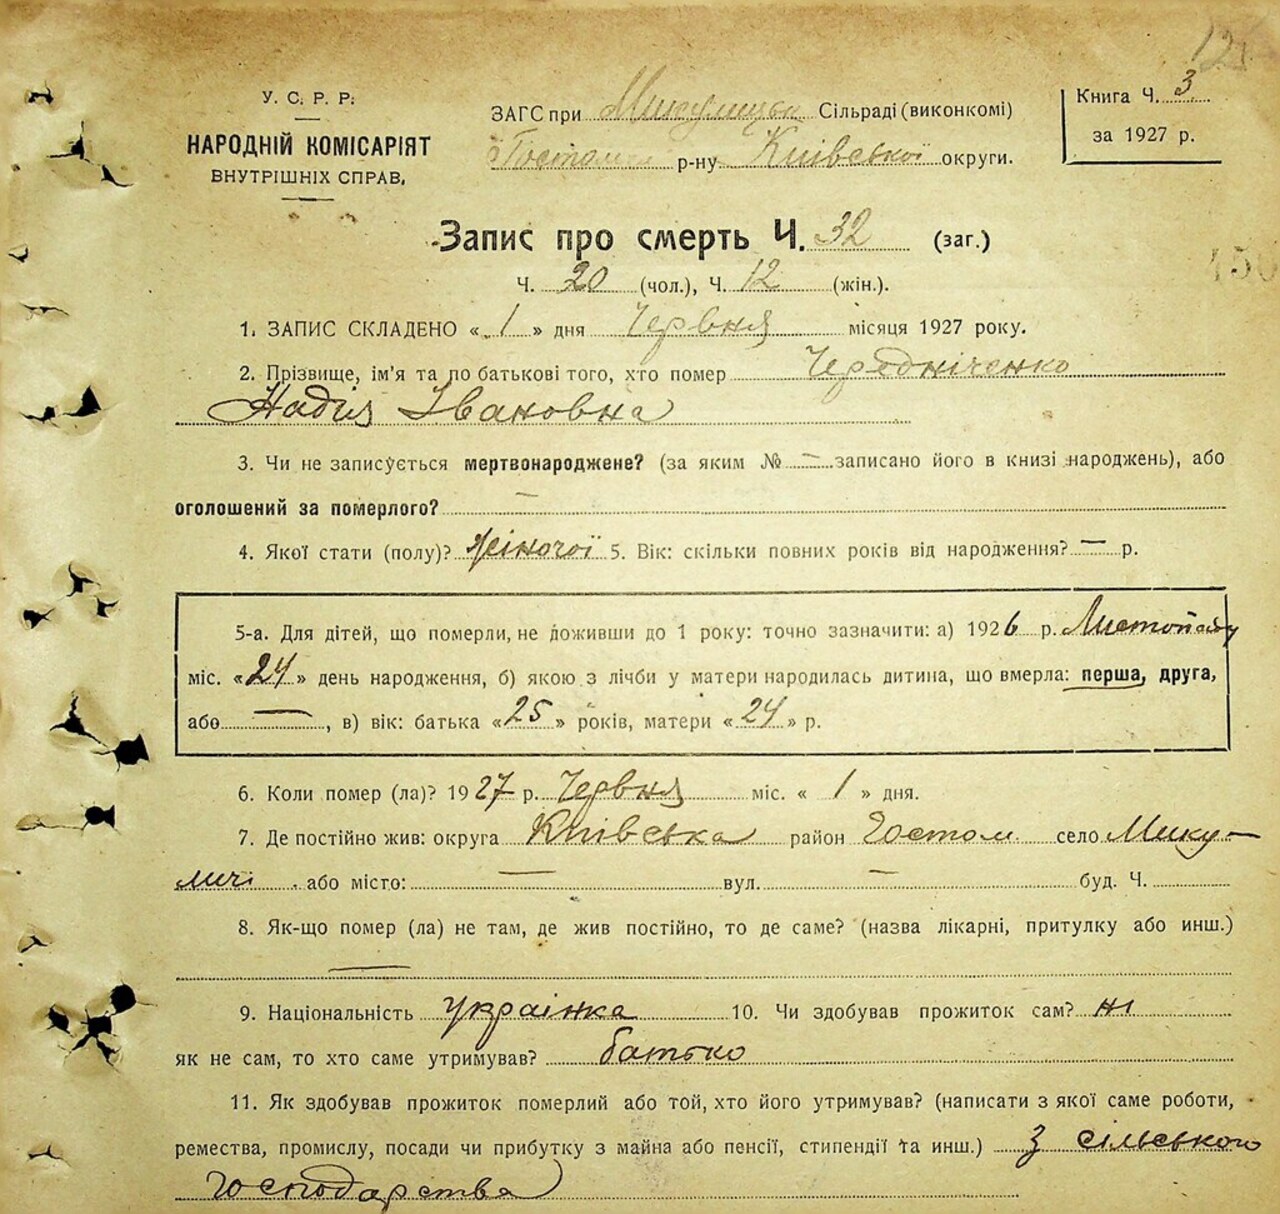 12
У. С. Р. Р.
НАРОДНІЙ КОМІСАРІЯТ
ВНУТРІШНІХ СПРАВ.
ЗАГС при Микулицьк Сільраді (виконкомі)
Гостом р-ну Київської округи.
Книга Ч. 3
за 1927 р.
150
Запис про смерть Ч. 32 (заг.)
Ч. 20 (чол.), Ч. 12 (жін.).
1. ЗАПИС СКЛАДЕНО « 1 » дня Червня місяця 1927 року.
2. Прізвище, ім'я та по батькові того, хто помер Чередніченко
Надія Івановна
3. Чи не записується мертвонароджене? (за яким № — записано його в книзі народжень), або
оголошений за померлого? —
4. Якої стати (полу)? жіночої 5. Вік: скільки повних років від народження? — р.
5-а. Для дітей, що померли, не доживши до 1 року: точно зазначити: а) 1926 р. Листопаду
міс. «24» день народження, б) якою з лічби у матери народилась дитина, що вмерла: перша, друга,
або —, в) вік: батька «25» років, матери «24» р.
6. Коли помер (ла)? 1927 р. Червня міс. « 1 » дня.
7. Де постійно жив: округа Київська район Гостом. село Мику-
личі. або місто: — вул. — буд. Ч.
8. Як-що помер (ла) не там, де жив постійно, то де саме? (назва лікарні, притулку або инш.)
—
9. Національність українка 10. Чи здобував прожиток сам? ні
як не сам, то хто саме утримував? батько
11. Як здобував прожиток померлий або той, хто його утримував? (написати з якої саме роботи,
ремества, промислу, посади чи прибутку з майна або пенсії, стипендії та инш.) З сільського
господарства